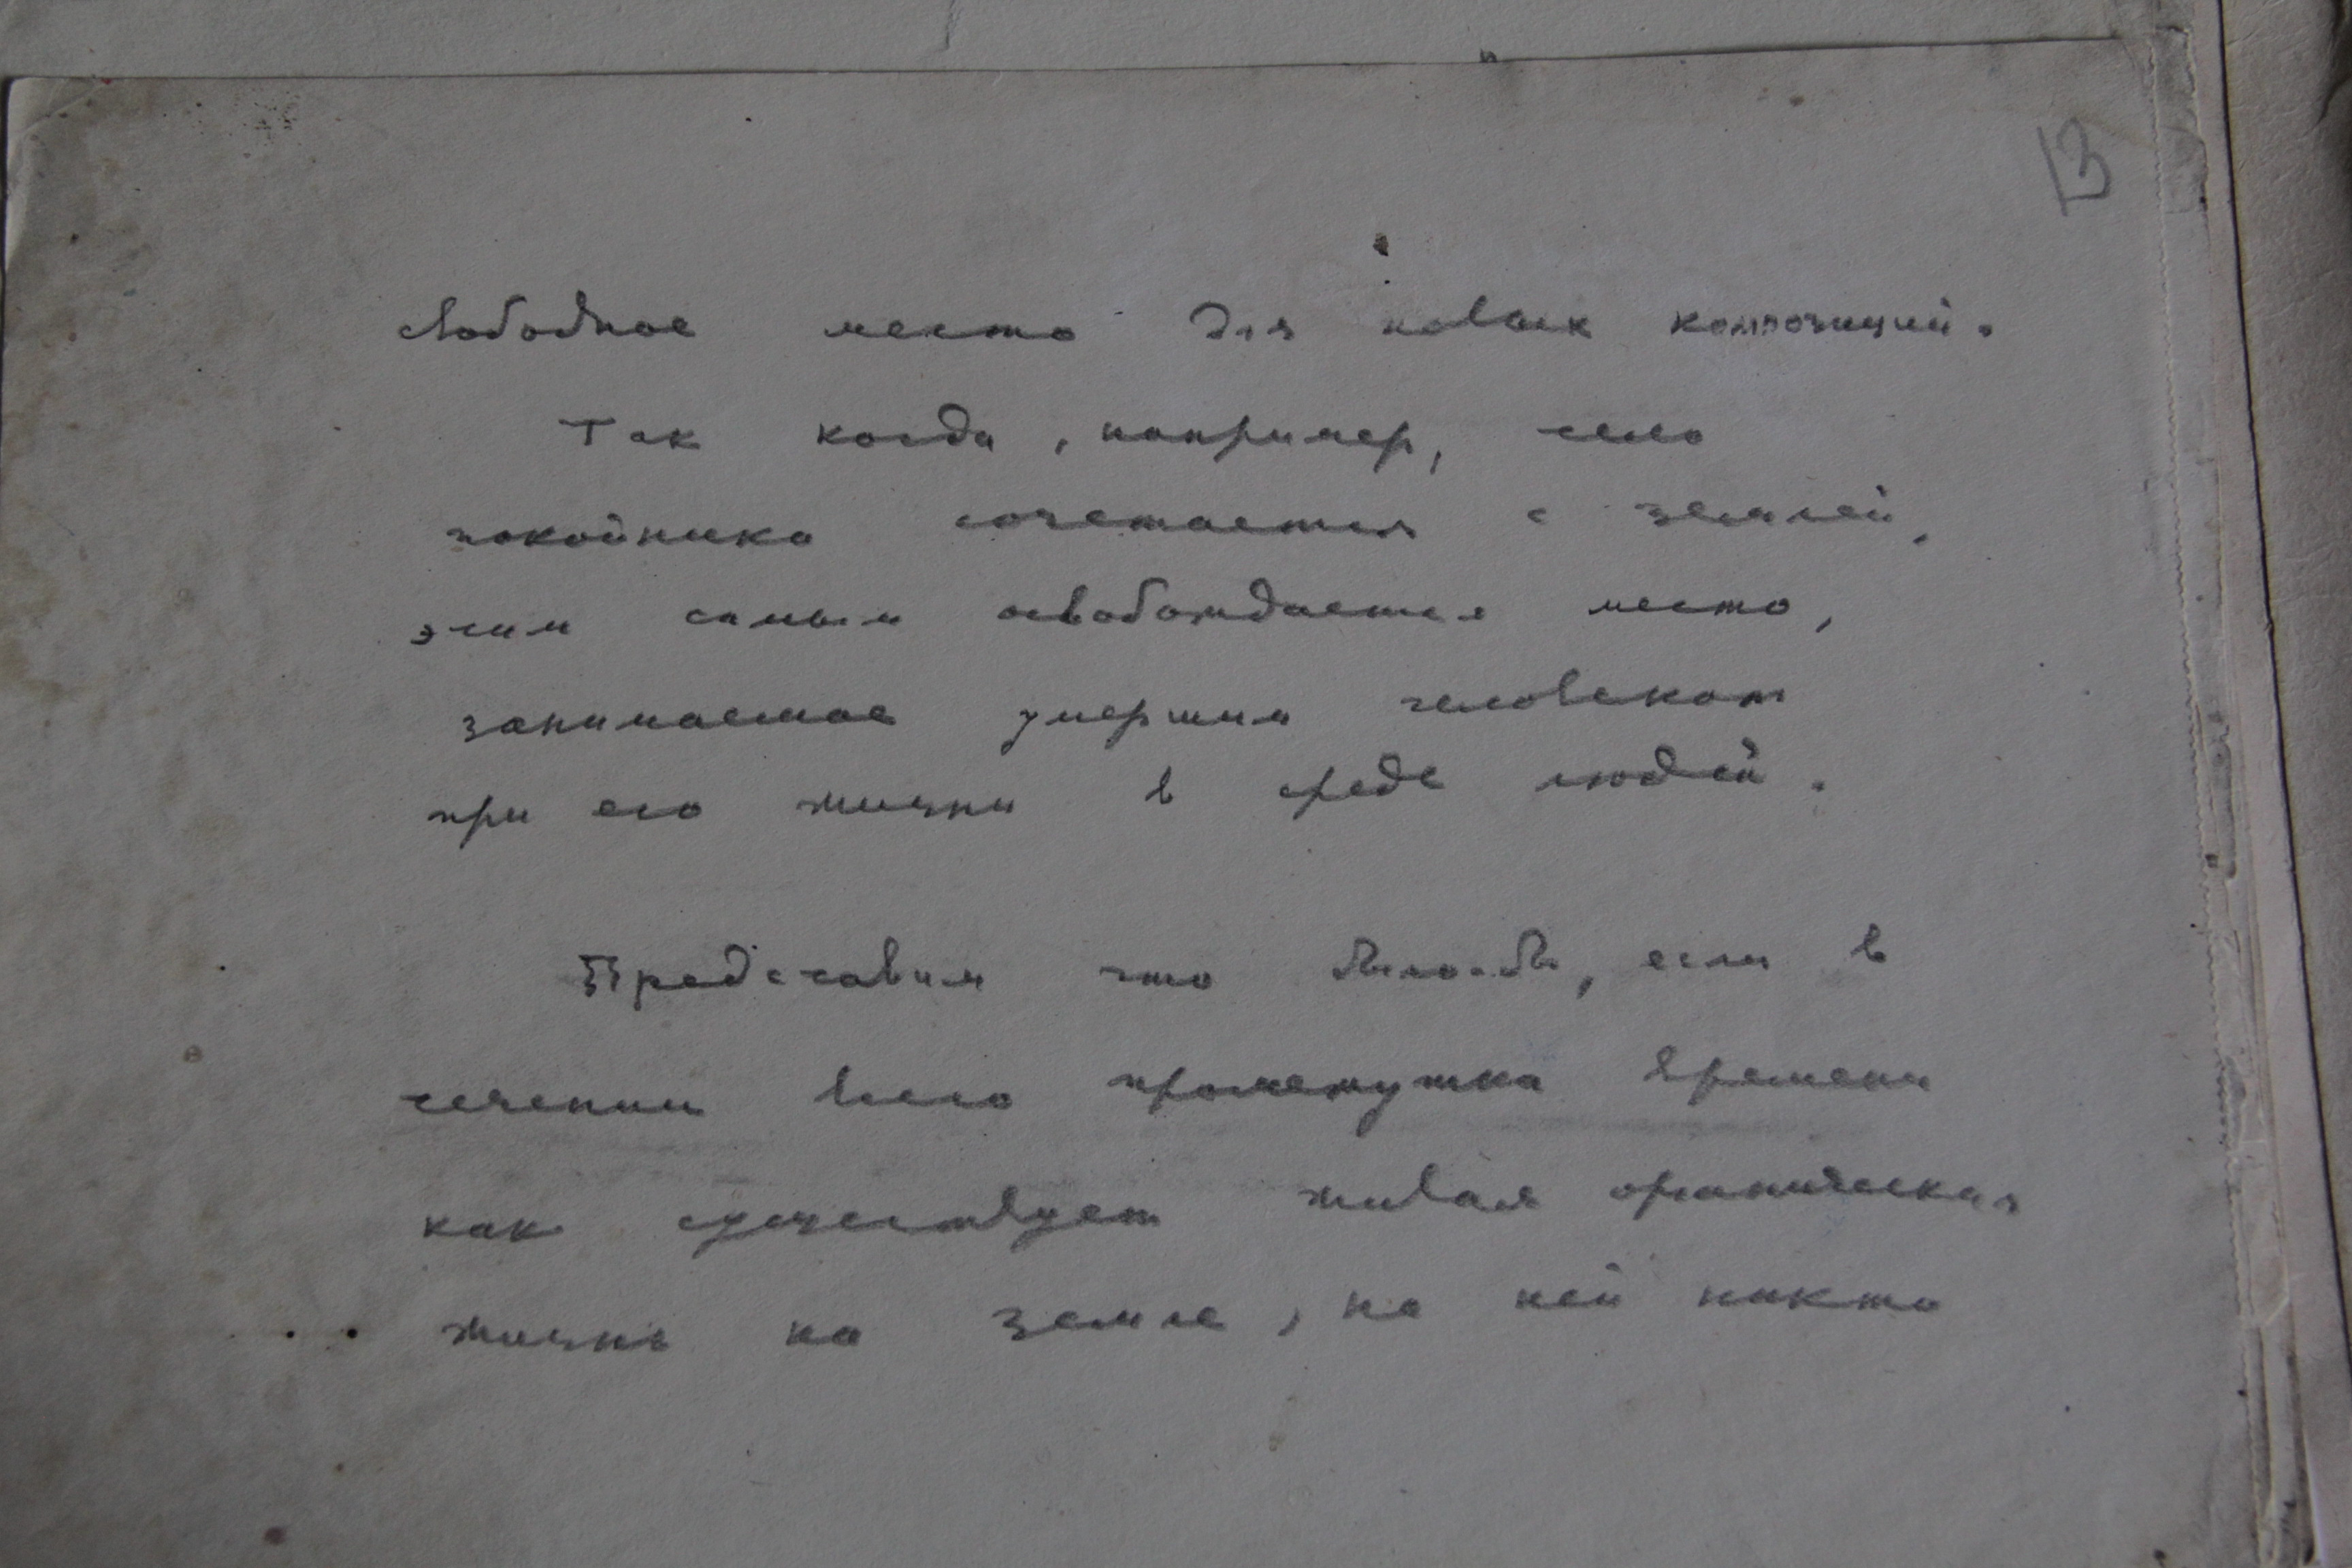 13
свободное место для новых композиций.
Так когда, например, тело
покойника сочетается с землей,
этим самым освобождается место,
занимаемое умершим человеком
при его жизни в среде людей.
Представим что было-бы, если в
течении всего промежутка времени
как существует живая органическая
жизнь на земле, на ней никто